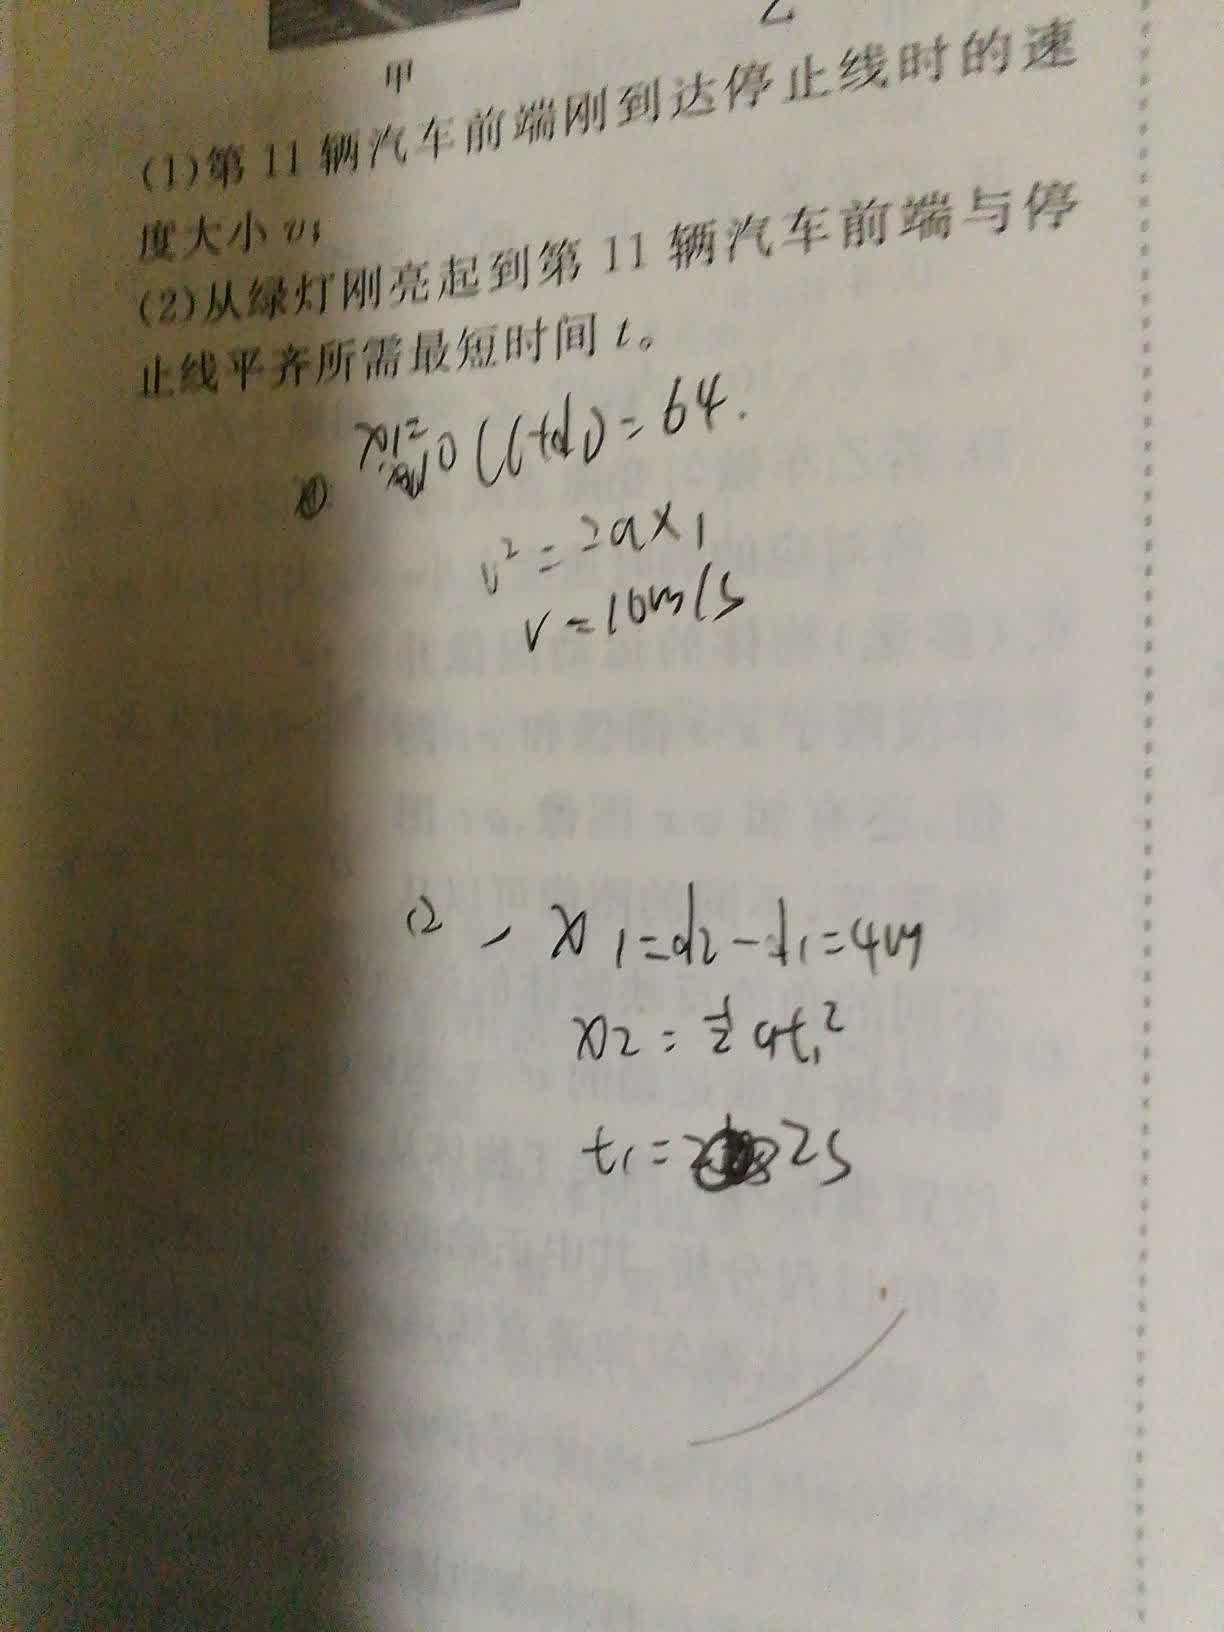 乙
甲
(1)第11辆汽车前端刚到达停止线时的速
度大小v;
(2)从绿灯刚亮起到第11辆汽车前端与停
止线平齐所需最短时间t。
x1=
10(l+d1)=64.
v²=2ax1
v=10m/s
(2
x1=d2-d1=4m
x2=½at1²
t1=2s